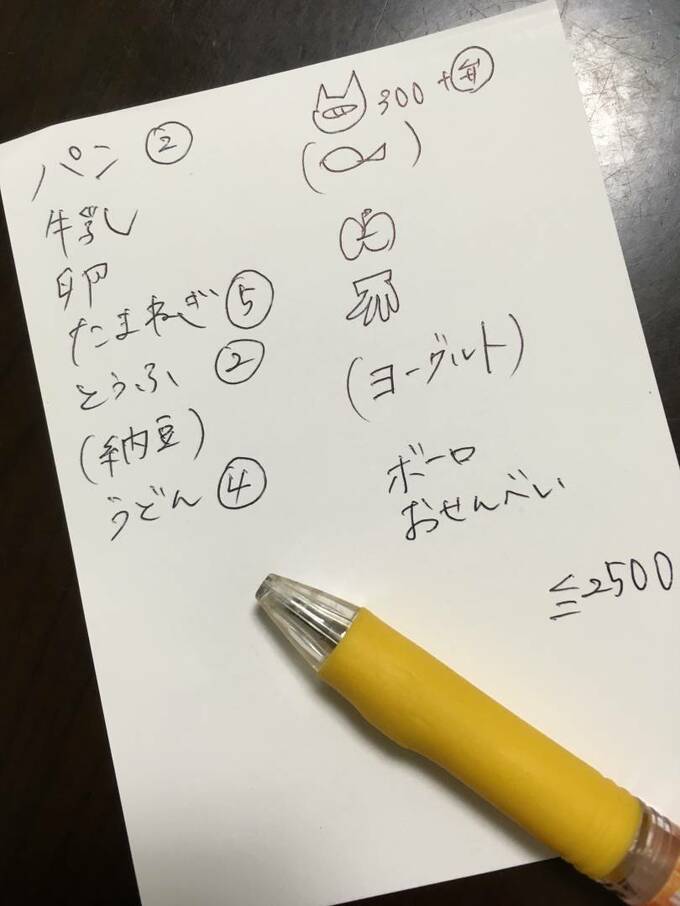 パン ②
牛乳
卵
たまねぎ ⑤
とうふ ②
(納豆)
うどん ④
300 +弁
(ヨーグルト)
ボーロ
おせんべい
≦2500